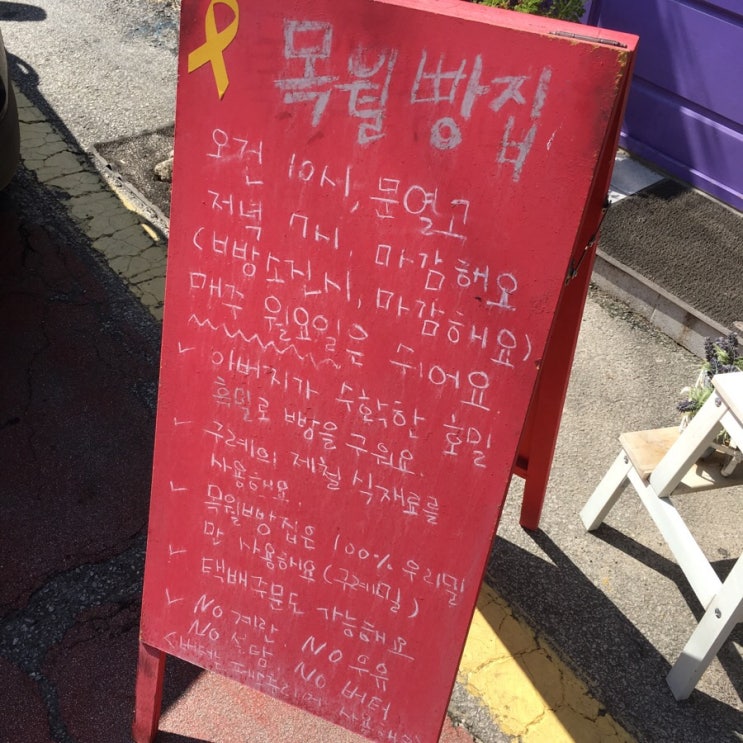 목월빵집
오전 10시, 문열고
저녁 7시, 마감해요
(빵소진시, 마감해요)
매주 월요일은 쉬어요
✓ 아버지가 수확한 호밀
흑밀로 빵을 구워요.
✓ 구례의 제철 식재료를
사용해요.
✓ 목월빵집은 100% 우리밀
만 사용해요(구례밀)
✓ 택배주문도 가능해요
✓ No 계란 No 우유
No 설탕 No 버터